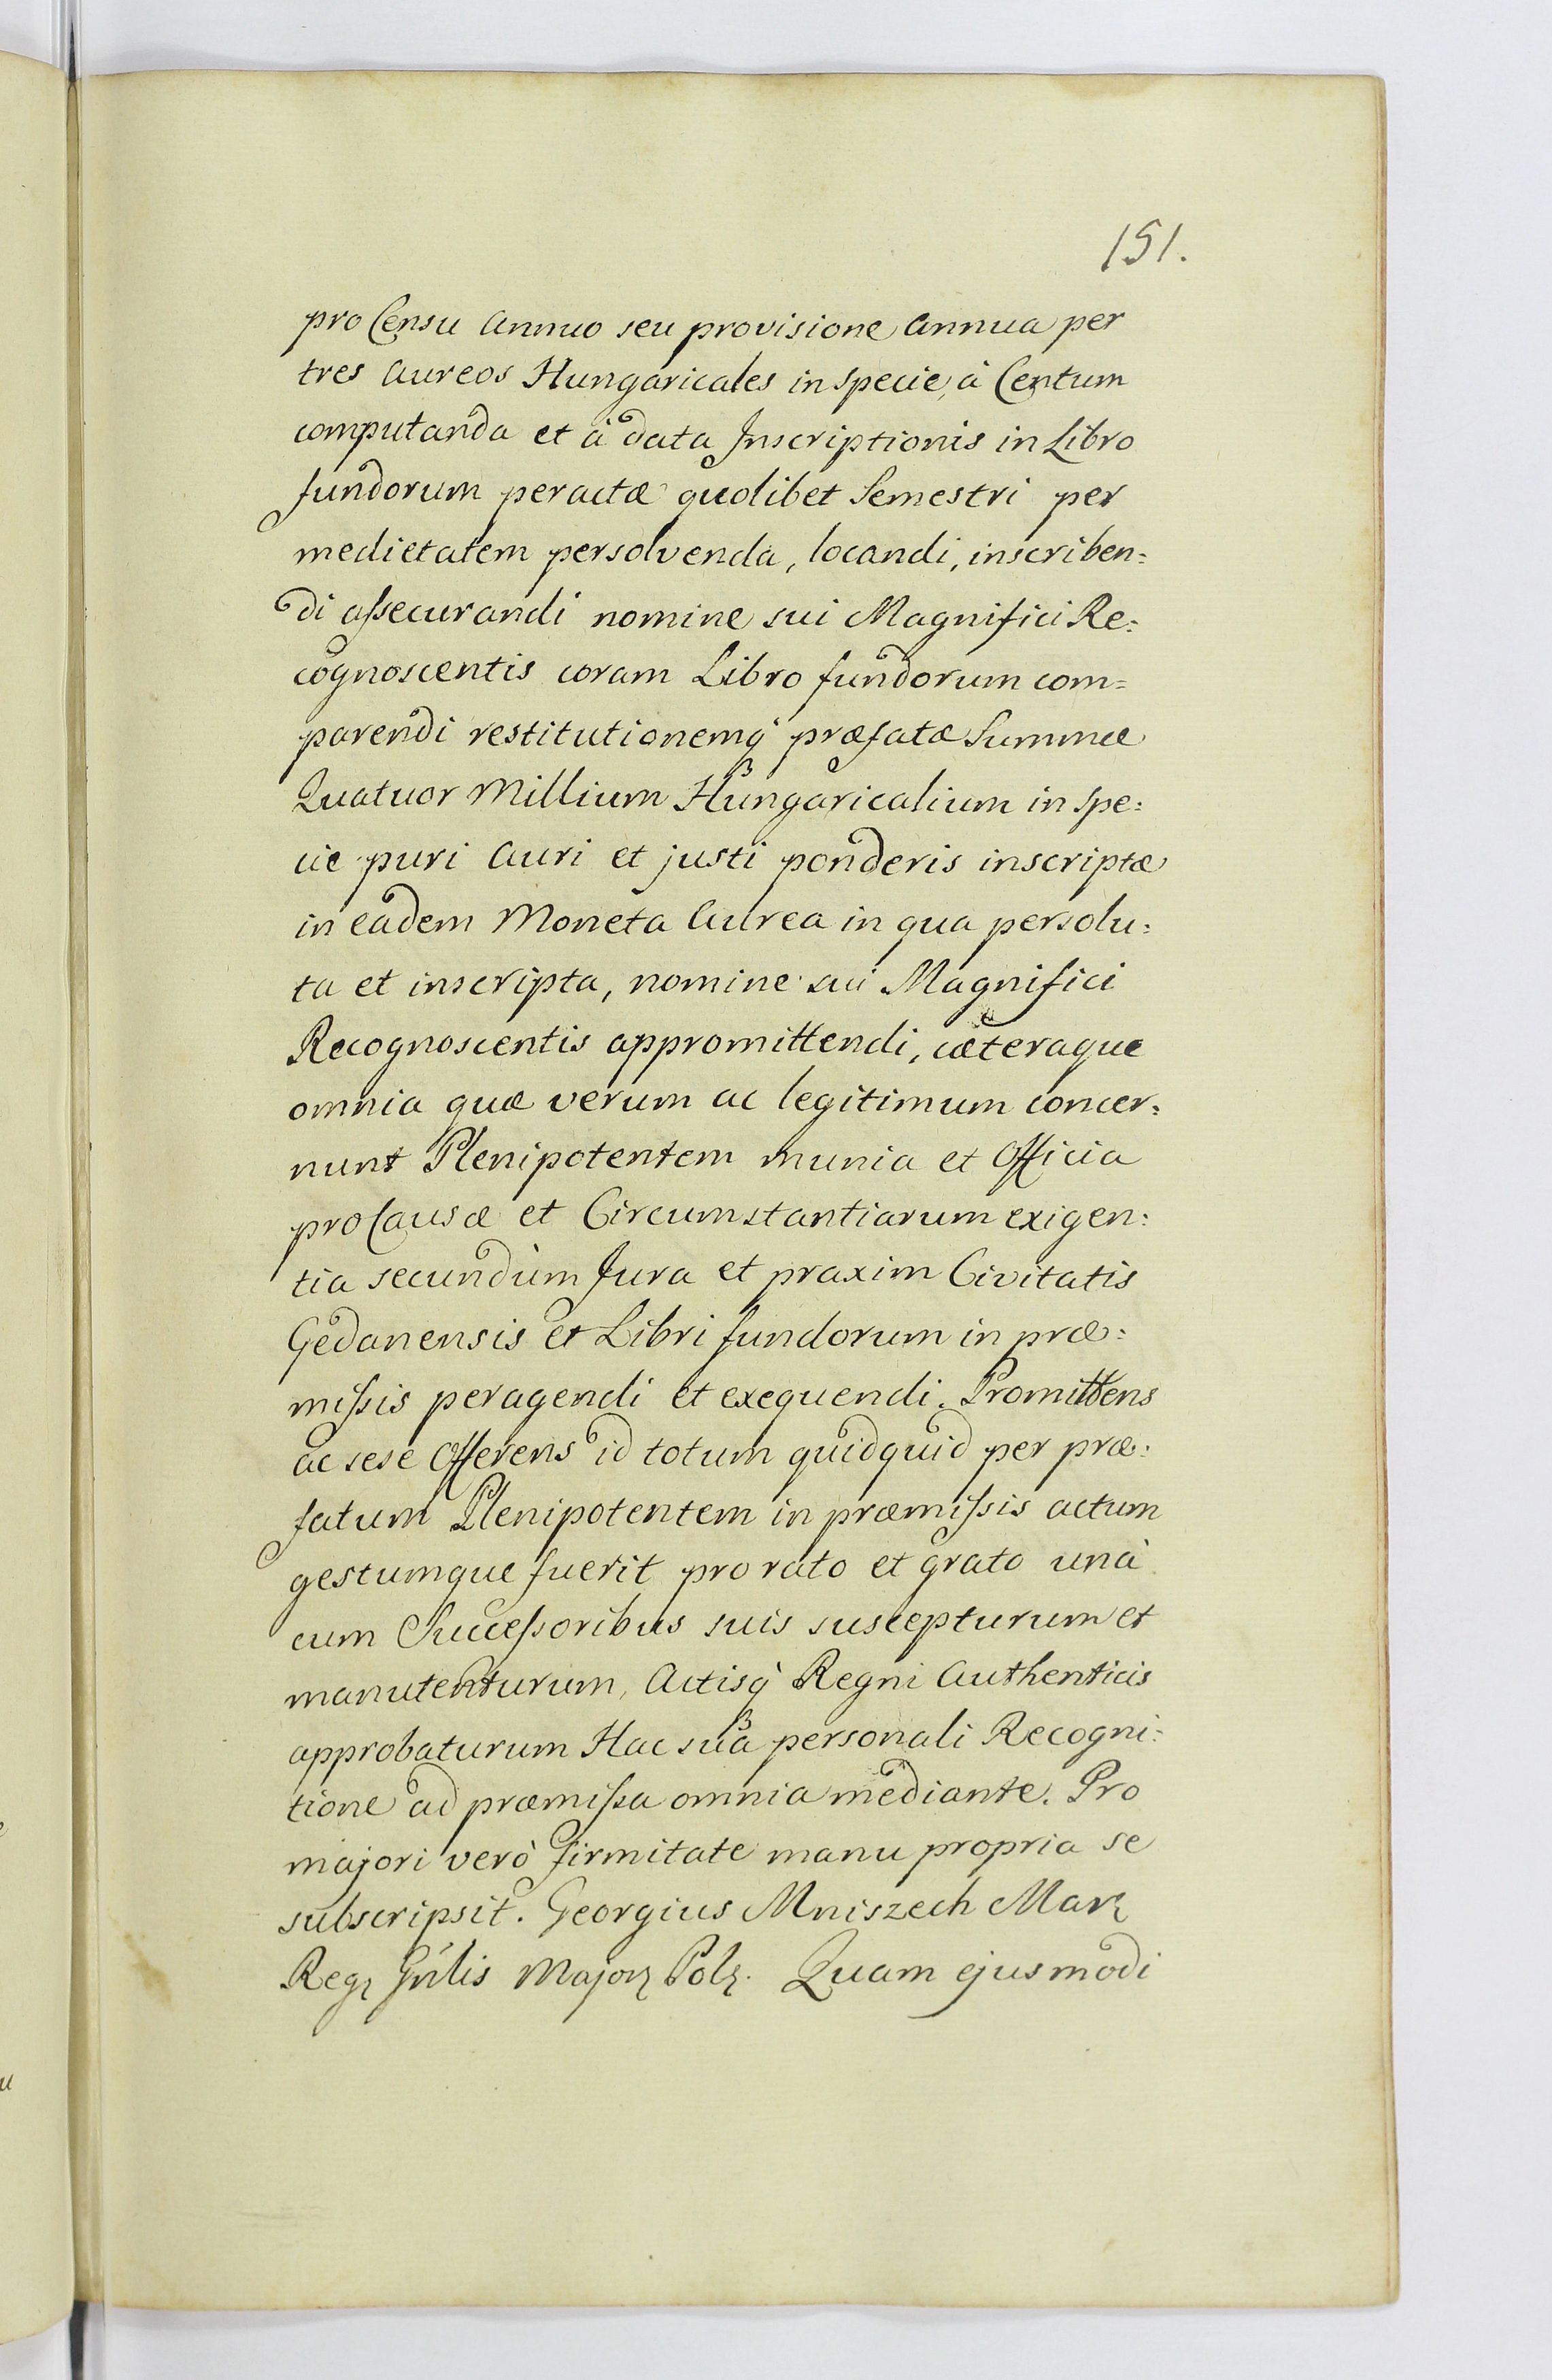 151.
pro Censu Annuo seu provisione Annua per
tres Aureos Hungaricales in specie, à Centum
computanda et à data Inscriptionis in Libro
fundorum peractæ quolibet Semestri per
medietatem persolvenda, locandi, inscriben=
di aſsecurandi nomine sui Magnifici Re=
cognoscentis coram Libro fundorum com=
parendi restitutionemq́ præfatæ Summæ
Quatuor Millium Hungaricalium in spe=
cie puri Auri et justi ponderis inscriptæ
in eadem Moneta Aurea in qua persolu=
ta et inscripta, nomine sui Magnifici
Recognoscentis appromittendi, cæteraque
omnia quæ verum ac legitimum concer=
nunt Plenipotentem munia et Officia
pro Causæ et Circumstantiarum exigen=
tia secundùm Jura et praxim Civitatis
Gedanensis et Libri fundorum in præ=
miſsis peragendi et exequendi. Promittens
ac sese Offerens id totum quidquid per præ=
fatum Plenipotentem in præmiſsis actum
gestumque fuerit pro rato et grato unà
cum Succeſsoribus suis suscepturum et
manutenturum, Actisq́ Regni Authenticis
approbaturum Hac sua personali Recogni=
tione ad præmiſsa omnia mediante. Pro
majori verò firmitate manu propria se
subscripsit. Georgius Mniszech Marꝫ
Regꝫ Gńlis Majorꝫ Polꝫ. Quam ejusmodi